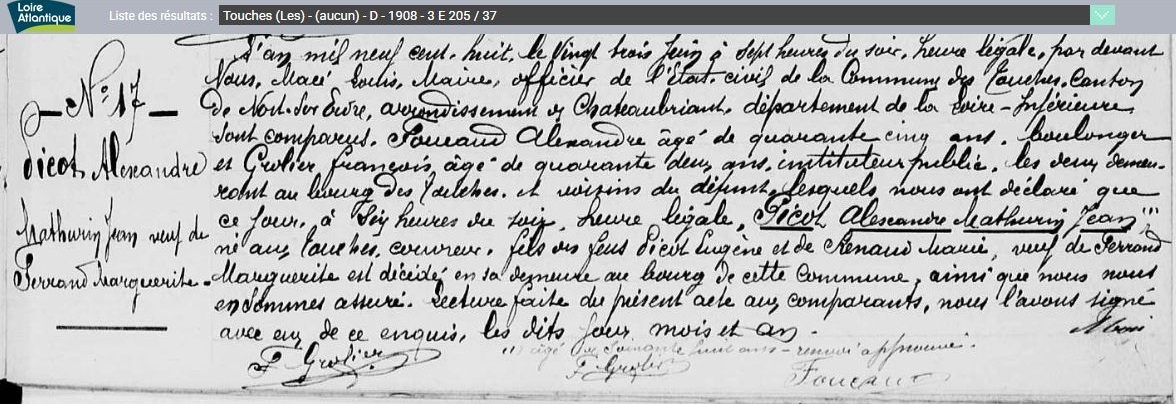 Loire Atlantique
Liste des résultats : Touches (Les) - (aucun) - D - 1908 - 3 E 205 / 37
N° 17
Picot Alexandre
Mathurin Jean veuf de
Perraud Marguerite.
L'an mil neuf cent. huit, le vingt trois Juin à sept heures du soir, heure légale, par devant
Nous, Macé Louis, Maire, officier de l'État. civil de la Commune des Touches, Canton
de Nort-sur Erdre, arrondissement de Chateaubriant, département de la Loire-Inférieure
sont comparus. Foucaud Alexandre âgé de quarante cinq ans, boulanger
et Grolier françois, âgé de quarante deux ans, instituteur public, les deux demeu-
rant au bourg des Touches. et voisins du défunt, lesquels nous ont déclaré que
ce jour, à six heures du soir, heure légale, Picot Alexandre Mathurin Jean (1)
né aux Touches, couvreur, fils des feus Picot Eugène et de Renaud Marie, veuf de Perraud
Marguerite est décédé en sa demeure au bourg de cette Commune, ainsi que nous nous
en sommes assuré. Lecture faite du présent acte aux comparants, nous l'avons signé
avec eux de ce enquis, les dits jour mois et an.
(1) âgé de soixante huit ans - renvoi approuvé.
F. Grolier
F Grolier
Foucaud